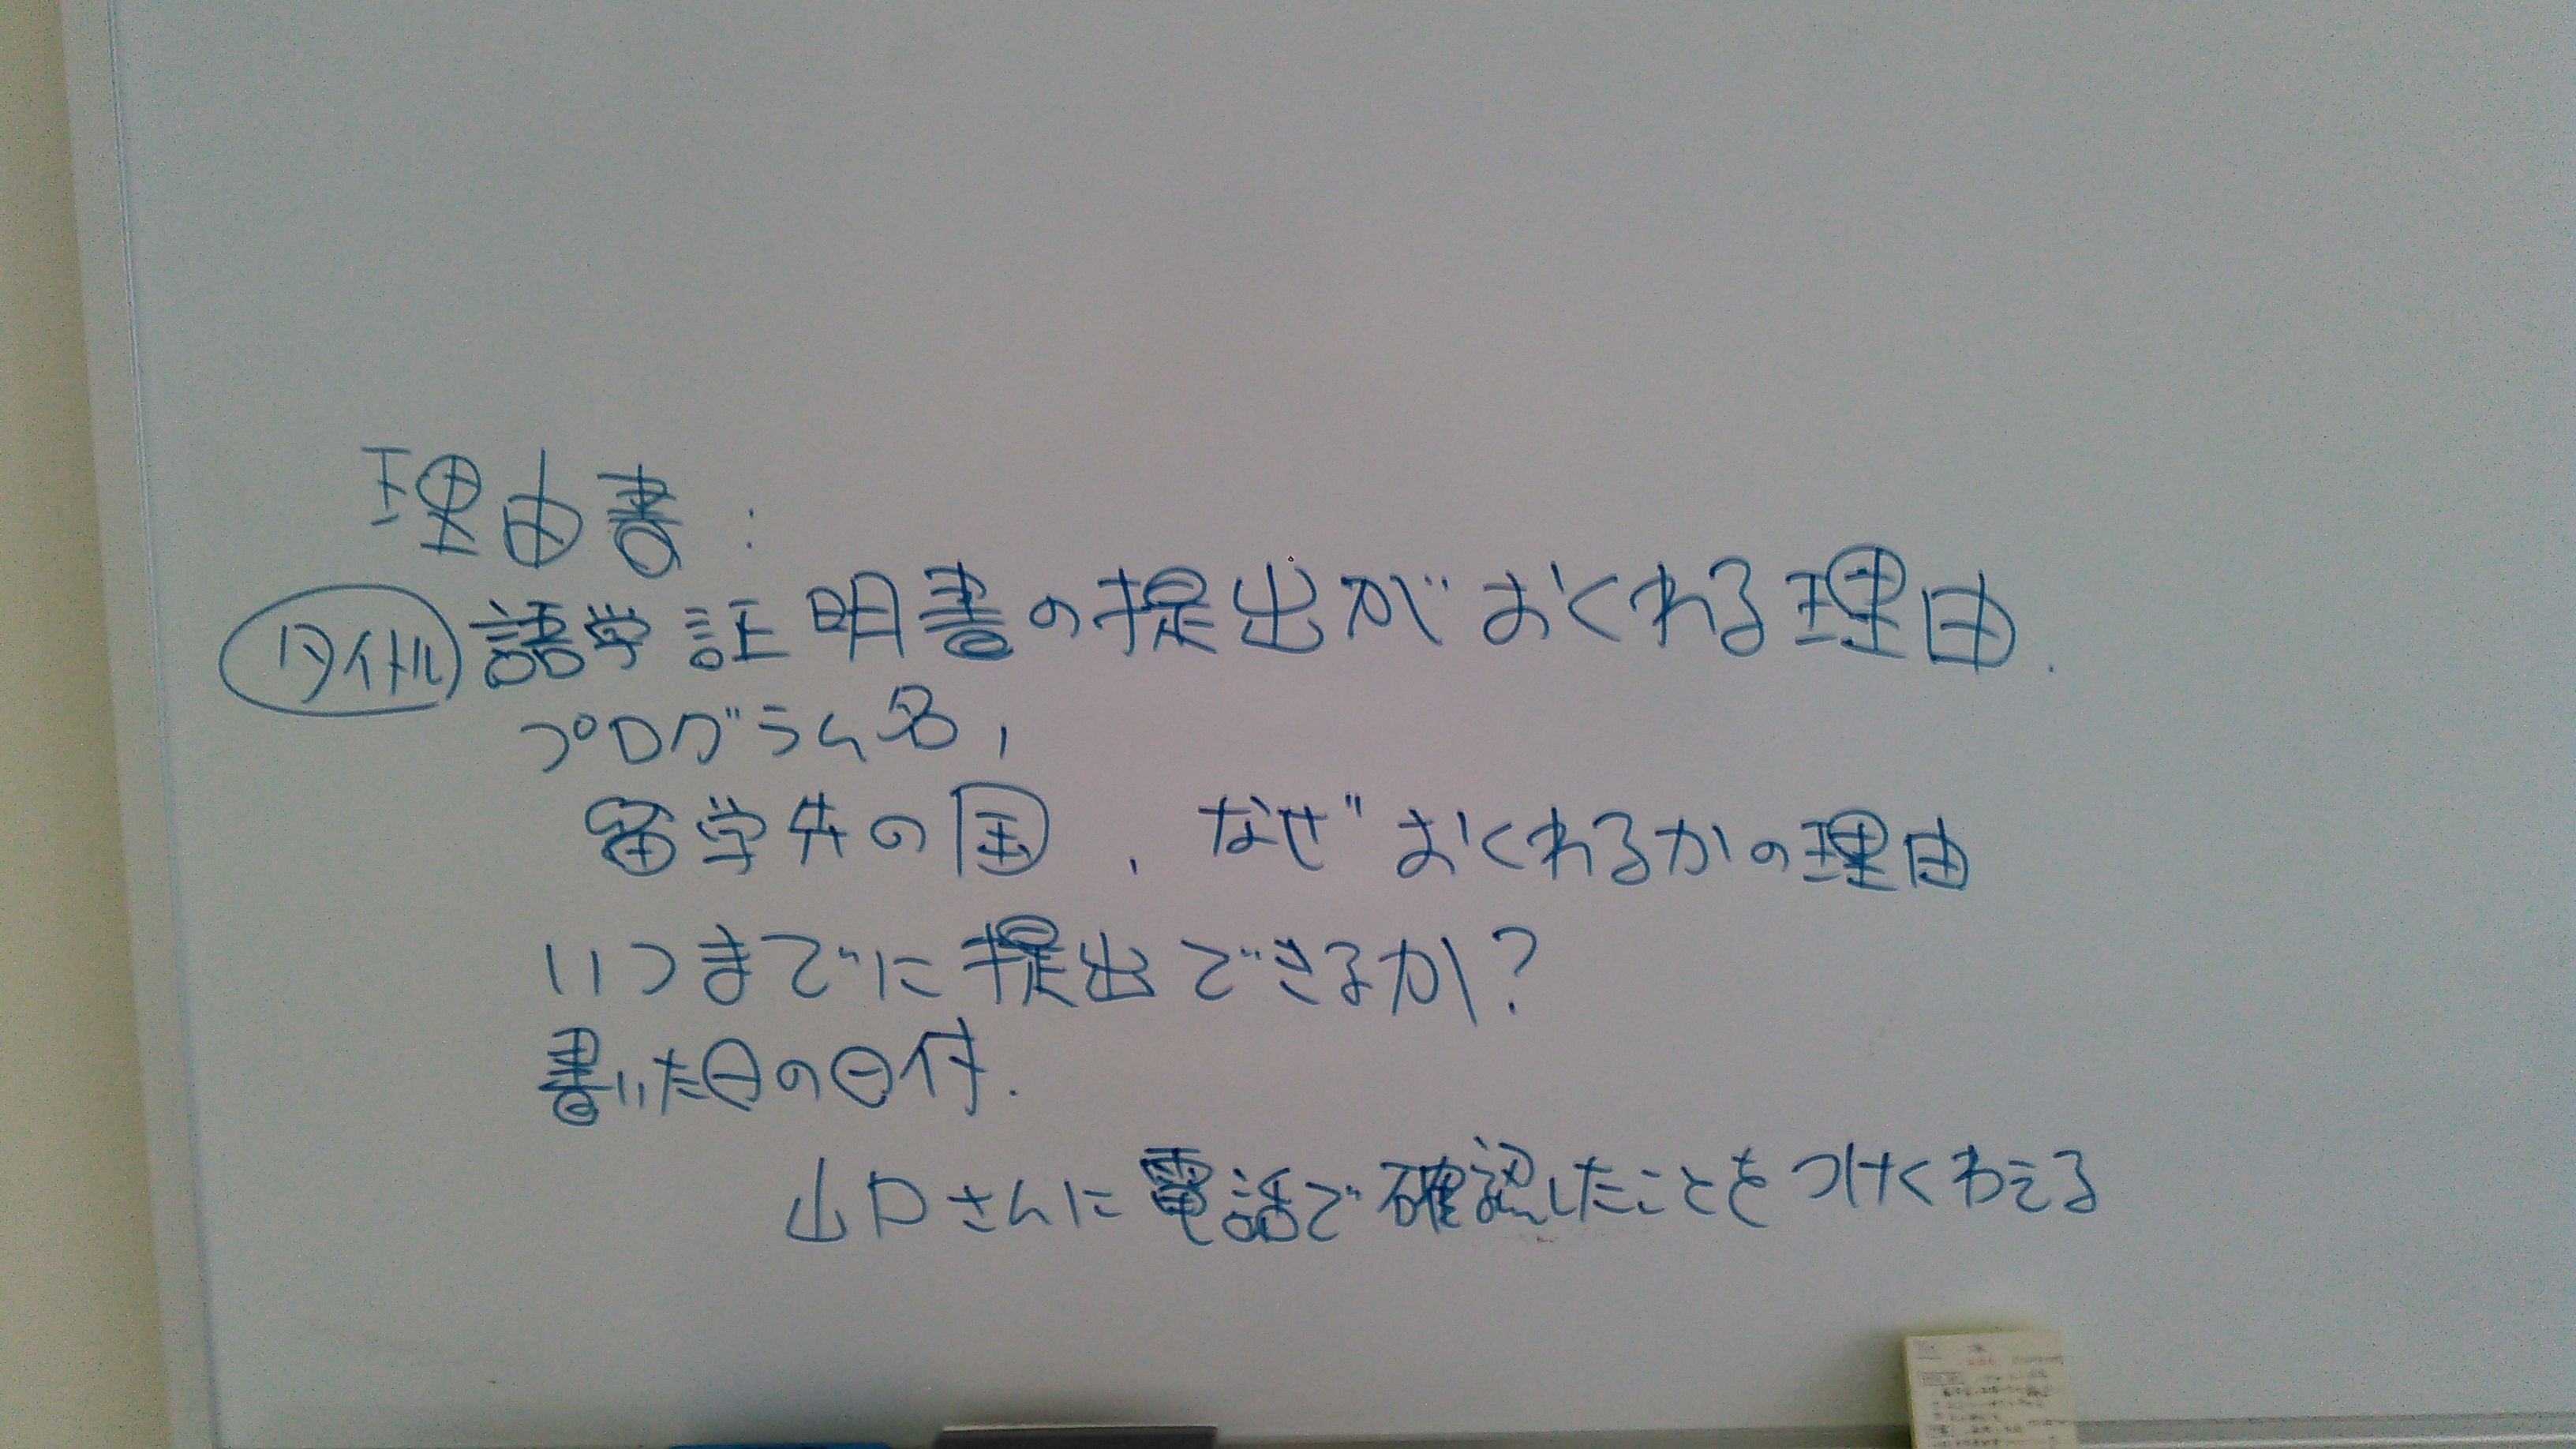 理由書:
タイトル 語学証明書の提出がおくれる理由.
プログラム名,
留学先の国, なぜおくれるかの理由
いつまでに提出できるか?
書いた日の日付.
山口さんに電話で確認したことをつけくわえる